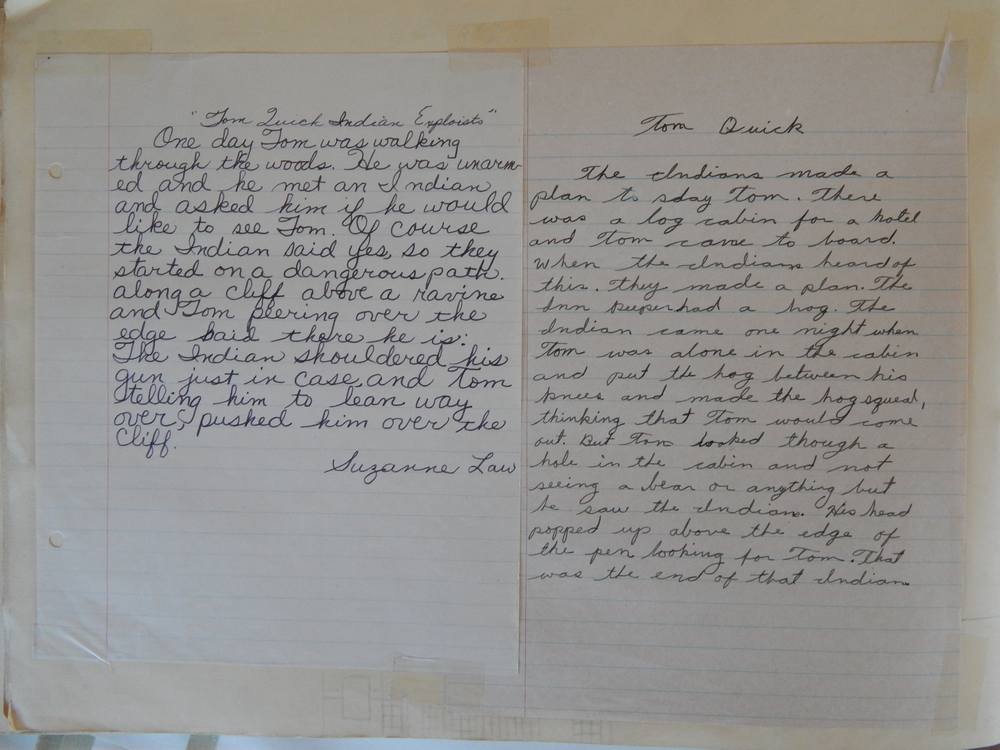 "Tom Quick Indian Exploists"
One day Tom was walking
through the woods. He was unarm-
ed and he met an Indian
and asked him if he would
like to see Tom. Of course
the Indian said yes, so they
started on a dangerous path.
along a cliff above a ravine
and Tom peering over the
edge said there he is.
The Indian shouldered his
gun just in case and Tom
telling him to lean way
over, pushed him over the
cliff.
Suzanne Law
Tom Quick
The Indians made a
plan to slay Tom. There
was a log cabin for a hotel
and Tom came to board.
When the Indians heard of
this. They made a plan. The
Inn keeper had a hog. The
Indian came one night when
Tom was alone in the cabin
and put the hog between his
knees and made the hog squeal,
thinking that Tom would come
out. But Tom looked though a
hole in the cabin and not
seeing a bear or anything but
he saw the Indian. His head
popped up above the edge of
the pen looking for Tom. That
was the end of that Indian.